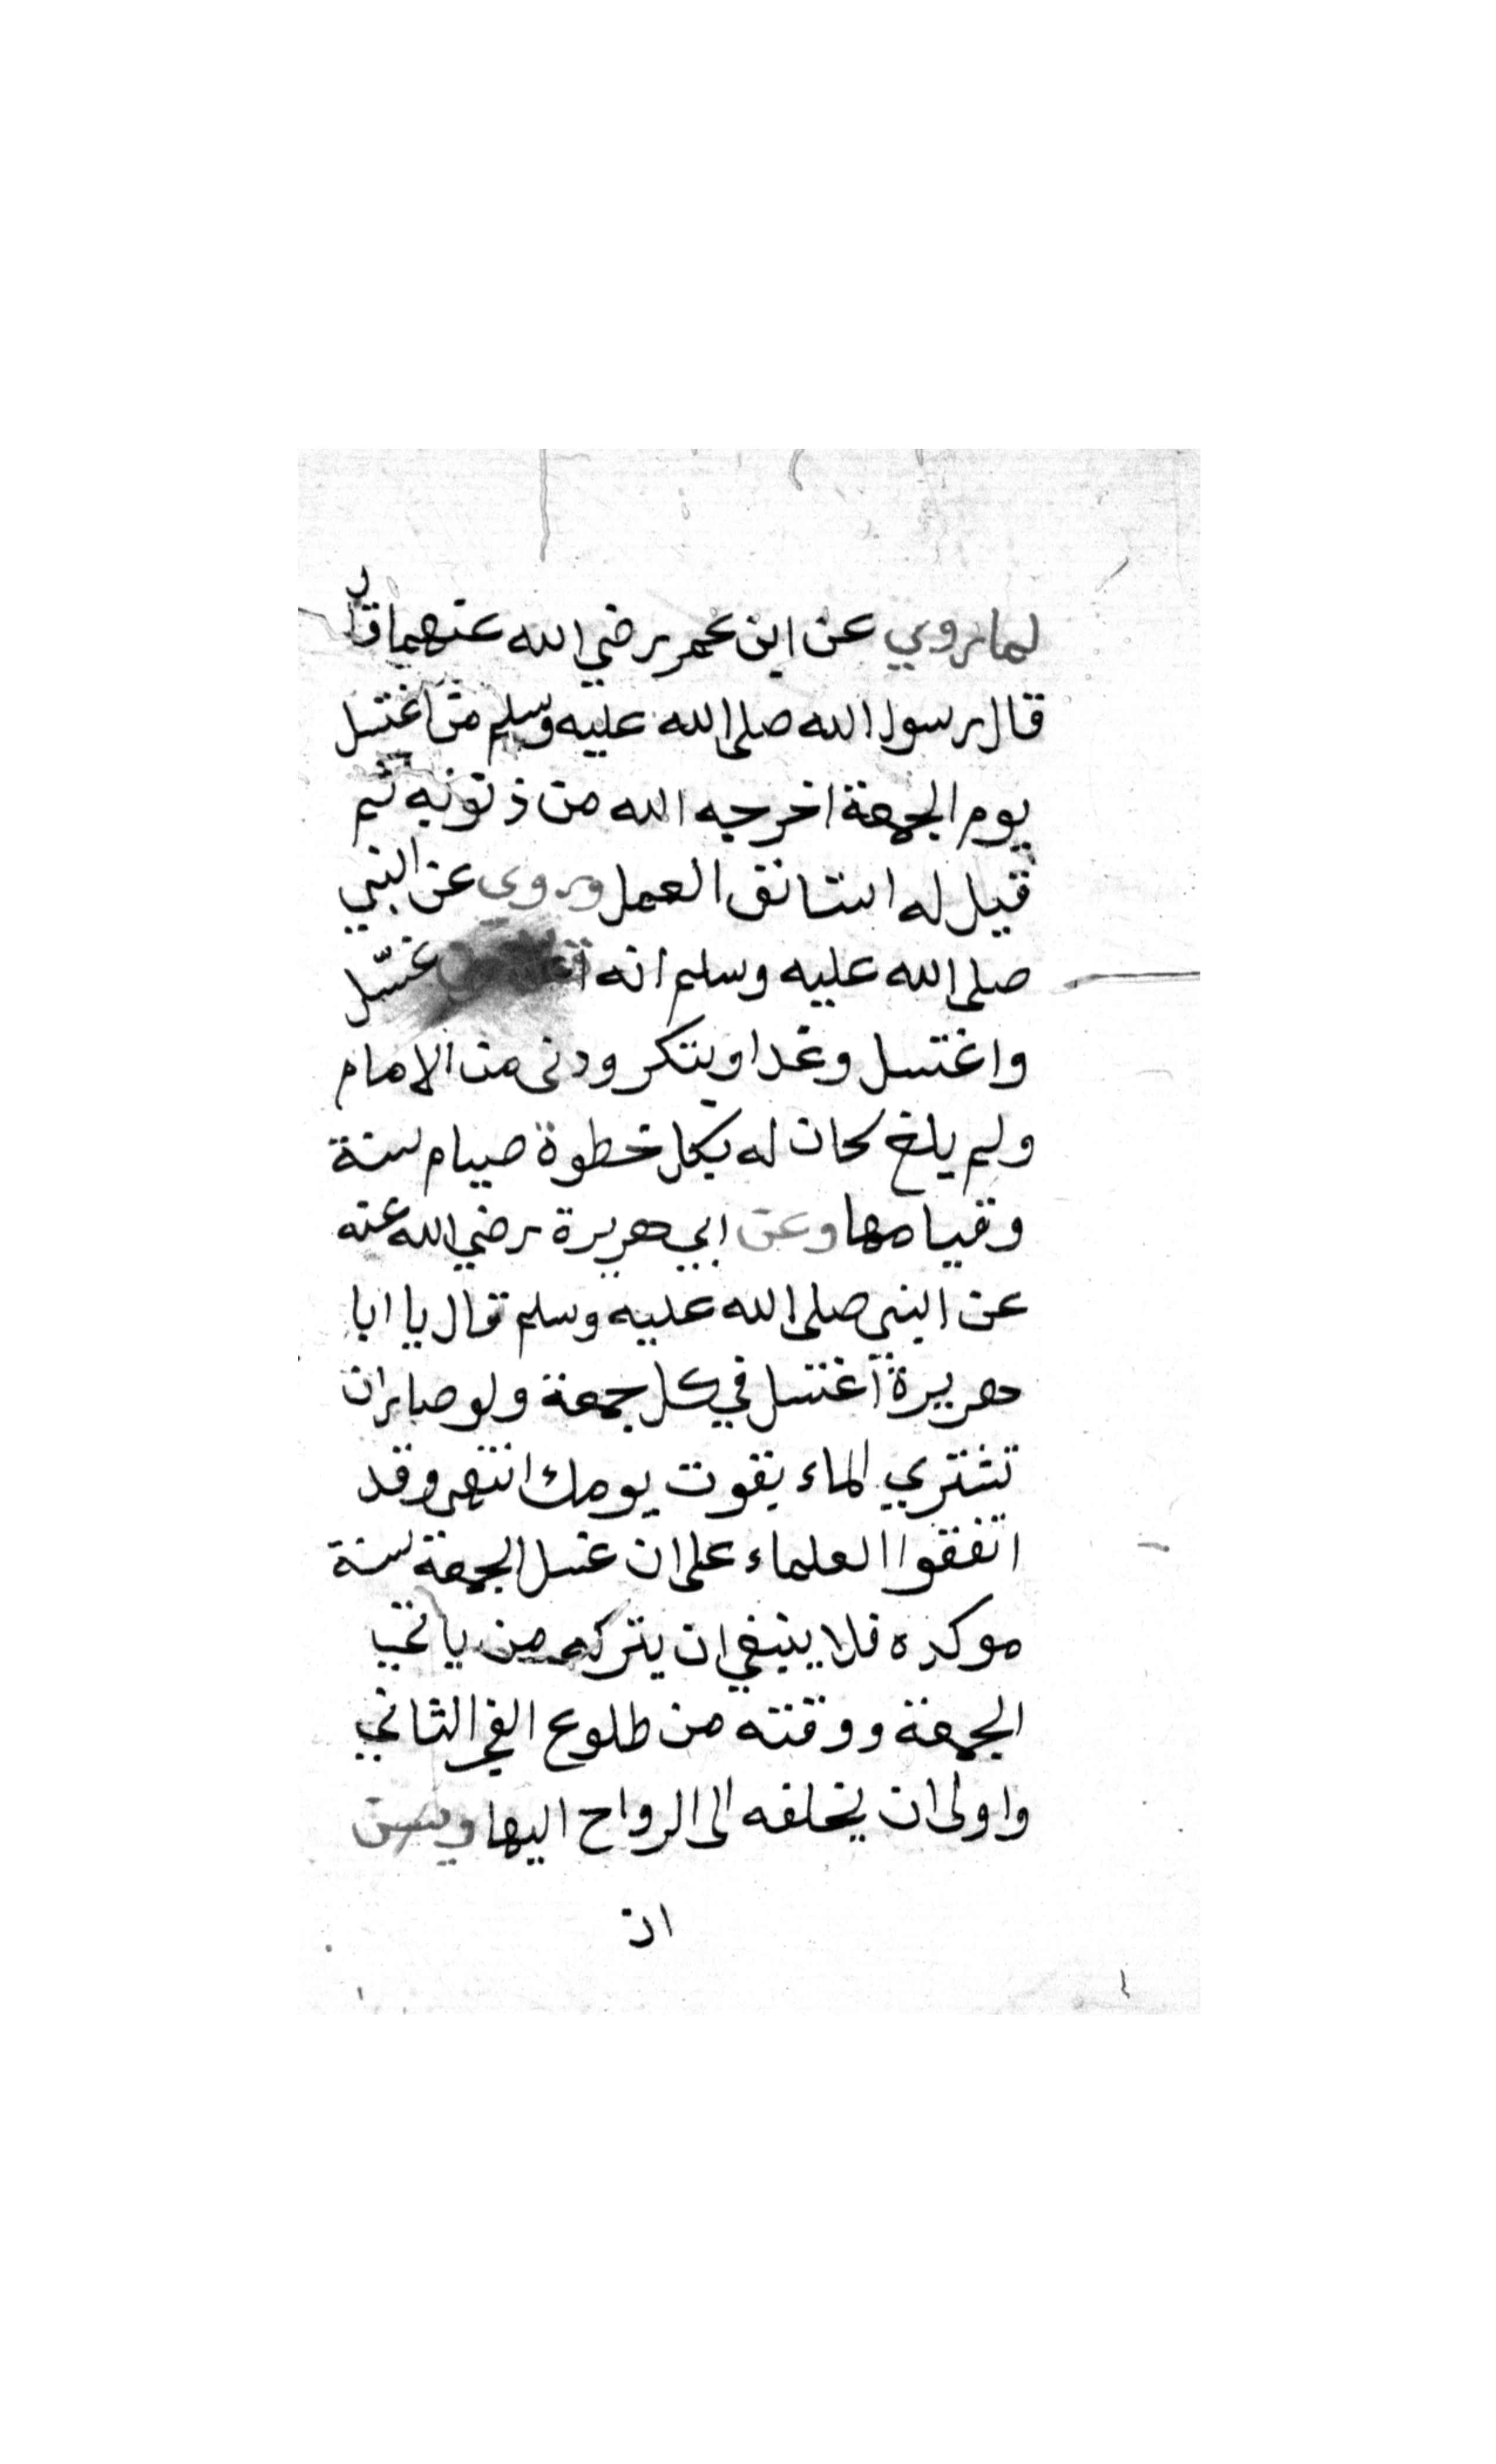 لما روي عن ابن عمر رضي الله عنهما قال
قال رسول الله صلى الله عليه وسلم من اغتسل
يوم الجمعة اخرجه الله من ذنوبه ثم
قيل له استانف العمل وروي عن النبي
صلى الله عليه وسلم انه غسّل
واغتسل وغدا وبتكر ودنى من الامام
ولم يلغ كان له بكل خطوة صيام سنة
وقيامها وعن ابي هريرة رضي الله عنه
عن النبي صلى الله عليه وسلم قال يا ابا
هريرة اغتسل في كل جمعة ولو صار ان
تشتري الماء بقوت يومك انتهى وقد
اتفقوا العلماء على ان غسل الجمعة سنة
موكده فلا ينبغي ان يتركه من ياتي
الجمعة ووقته من طلوع الفجر الثاني
واولى ان الى الرواح اليها ويسن
ان